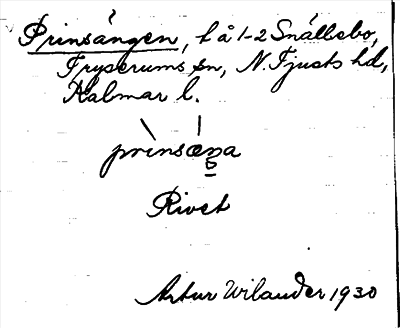 Prinsängen, t å 1-2 Snällebo,
Tryserums sn, N. Tjusts hd,
Kalmar l.
Rivet
Artur Wilander 1930